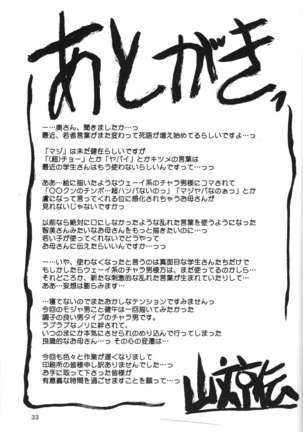 あとがき
ー…奥さん、聞きましたか…っ
最近、若者言葉がまた変わって死語が増え始めてるらしいですよ…っ
「マジ」は未だ健在らしいですが
「（超）チョー」とか「ヤバイ」とかキツメの言葉は
最近の学生さんはもう使わないらしいんですって…っっ
ああ…絵に描いたようなウェーイ系のチャラ男様にコマされて
「〇〇クンのチンポ…超ハンパないのっ」「マジヤバなのぉっ」とか
虜になって言ってくれる位に感化されちゃうお母さんが
見れないじゃないですかっ
以前なら絶対に口にしなかったような乱れた言葉を使うようになった
智美さんみたいなお母さんをもっと描きたいのに…っ
若い子が使ってくれないでどうやって
お母さんに伝えたらいいんですかー…っっ
ー…いや、使わなくなったと言うのは真面目な学生さんたちだけで
もしかしたらウェーイ系のチャラ男様方は、まだ使ってるのかしら…
それどころか、新たな刺激的な乱れた言葉が生まれていたりして…
ああ…妄想は膨らみます…
…寝てないのでまたおかしなテンションですみませんっ
今回のモジャ男こと健午は一回描いてみたかった
調子の良い男タイプのチャラ男です。
ラブラブなノリに絆されて、
いつのまにか本気にさせられのめり込んで行ってしまった
良識的なお母さん…っ その心の変遷は…
今回も色々と作業が遅くなりまして
印刷所の皆様申し訳ありませんでした…っ
お手に取って下さった皆様が
有意義な時間を過ごせますことを願って…っ
33